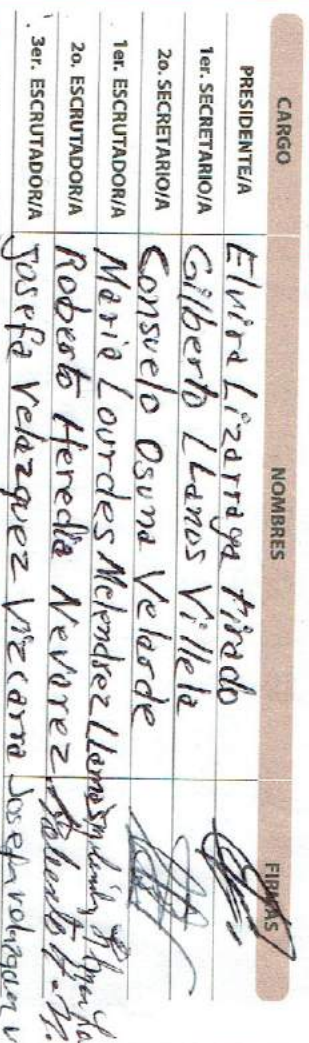 CARGO NOMBRES FIRMAS
PRESIDENTE/A Elvira Lizarraga Tirado
1er. SECRETARIO/A Gilberto LLanos Villela
2o. SECRETARIO/A Consuelo Osuna Velarde
1er. ESCRUTADOR/A Maria Lourdes Melendrez Llamas
2o. ESCRUTADOR/A Roberto Heredia Nevarez Roberto H. N.
3er. ESCRUTADOR/A Josefa Velazquez Vizcarra Josefa velazquez V